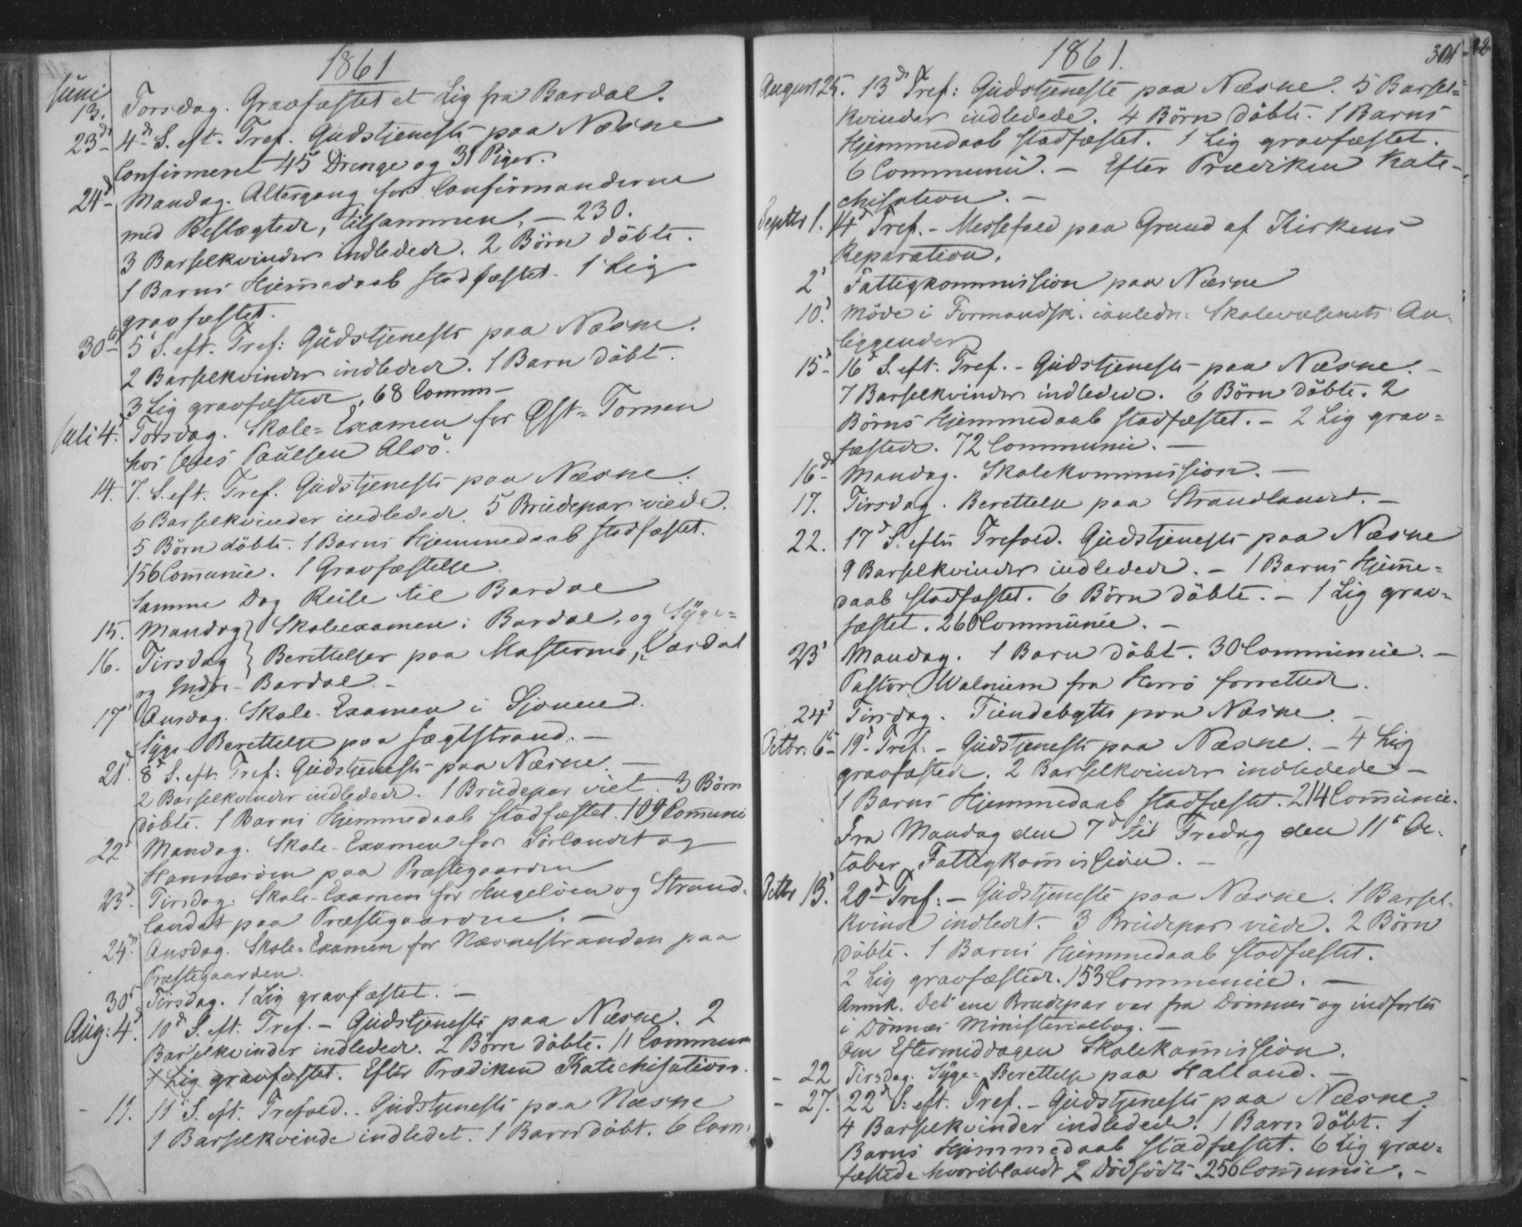 1861
Juni
13. Torsdag. Gravfæstet et Lig fra Bardal.
23d 4d S. eft. Tref. Gudstjeneste paa Næsne
Confirmeret 45 Drenge og 31 Piger.
24d Mandag. Altergang for Confirmanderne
med Beslægtede, tilsammen, - 230.
3 Barselkvinder indledede. 2 Börn döbte.
1 Barns Hjem̄edaab stadfæstet. 1 Lig
gravfæstet.
30te 5' S. eft. Tref: Gudstjeneste paa Næsne.
2 Barselkvinder indledede. 1 Barn döbt.
3 Lig gravfæstede. 68 Comm-
Juli 4. Torsdag. Skole-Examen for Øst-Tomen
hos Paulsen Alsö.
14. 7. S. eft. Tref. Gudstjeneste paa Næsne.
6 Barselkvinder indledede. 5 Brudepar viede.
5 Börn döbte. 1 Barns Hjemmedaab stadfæstet.
156 Com̄unic. 1 Gravfæstelse
Samme Dag Reise til Bardal
15. Mandag } Skoleexamen i Bardal, og Syge=
16. Tirsdag } Berettelser paa
og Indre-Bardal. -
17' Onsdag. Skole-Examen i Sjonen.
Syge-Berettelse paa Sægtstrand. -
21d 8d S. eft. Tref: Gudstjeneste paa Næsne. -
2 Barselkvinder indledede. 1 Brudepar viet. 3 Börn
döbte. 1 Barns Hjemmedaab stadfæstet. 109 Com̄uni
22d Mandag. Skole-Examen for Sörlandet og
Hannæsöen paa Præstegaarden
23d. Tirsdag. Skole-Examen for Hugelöen og Strand-
landet paa Præstegaarden. -
24d. Onsdag. Skole-Examen for Næsnestranden paa
Præstegaarden.
30' Tirsdag. 1 Lig gravfæstet. -
Aug: 4d. 10d S. eft. Tref. - Gudstjeneste paa Næsne. 2
Barselkvinder indledede. 2 Börn döbte. 11 Commun
1 Lig gravfæstet. Efter Prædiken Katechisation.
- 11. 11' S. eft. Trefold. - Gudstjeneste paa Næsne
1 Barselkvinde indledet. 1 Barn döbt. 6 Com:
1861.
August 25. 13d Tref: Gudstjeneste paa Næsne. 5 Barsel=
kvinder indledede. 4 Börn döbte. 1 Barns
Hjemmedaab stadfæstet. 1 Lig gravfæstet.
6 Communic. - Efter Prædiken Kate-
chisation. -
Septbr 1. 14d Tref. - Messefald paa Grund af Kirkens
Reparation.
2' Fattigkommission paa Næsne
10' Möde i Formandsk. ianledn: Skolevæsenets An-
liggender
15d 16d S. eft. Tref. - Gudstjeneste paa Næsne. -
7 Barselkvinder indledede. 6 Börn döbte. 2
Börns Hjemmedaab stadfæstet. - 2 Lig grav=
fæstede. 72 Communic. -
16d Mandag. Skolekommission. -
17. Tirsdag. Berettelse paa Strandlandet. -
22. 17d S. efter Trefold. Gudstjeneste paa Næsne
9 Barselkvinder indledede. - 1 Barns Hjem̄e=
daab stadfæstet. 6 Börn döbte. - 1 Lig grav=
fæstet. 260 Communic. -
23' Mandag. 1 Barn döbt. 30 Communic. -
Pastor Walnum fra Herö forrettede.
24d Tirsdag. Tiendebytte paa Næsne. -
Octbr. 6te 19d Tref. - Gudstjeneste paa Næsne. - 4 Lig
gravfæstede. 2 Barselkvinder indledede -
1 Barns Hjemmedaab stadfæstet. 214 Com̄unic.
Fra Mandag den 7d til Fredag den 11te Oc-
tober Fattigkom̄ission. -
Octbr 13'. 20d Tref: - Gudstjeneste paa Næsne. 1 Barsel-
kvinde indledet. 3 Brudepar viede. 2 Börn
döbte. 1 Barns Hjemmedaab stadfæstet.
2 Lig gravfæstede. 153 Communic. -
Anmk. Det ene Brudepar var fra Dönnæs og indfortes
i Dönnæs Ministerialbog. -
Om Eftermiddagen Skolekom̄ission.
- 22 Tirsdag. Syge-Berettelse paa Halland. -
- 27. 22d S: eft. Tref. - Gudstjeneste paa Næsne.
4 Barselkvinder indledede. 1 Barn döbt. 1
Barns Hjemmedaab stadfæstet. 6 Lig grav=
fæstede hvoriblandt 2 Dödfödte 256 Com̄unic. -